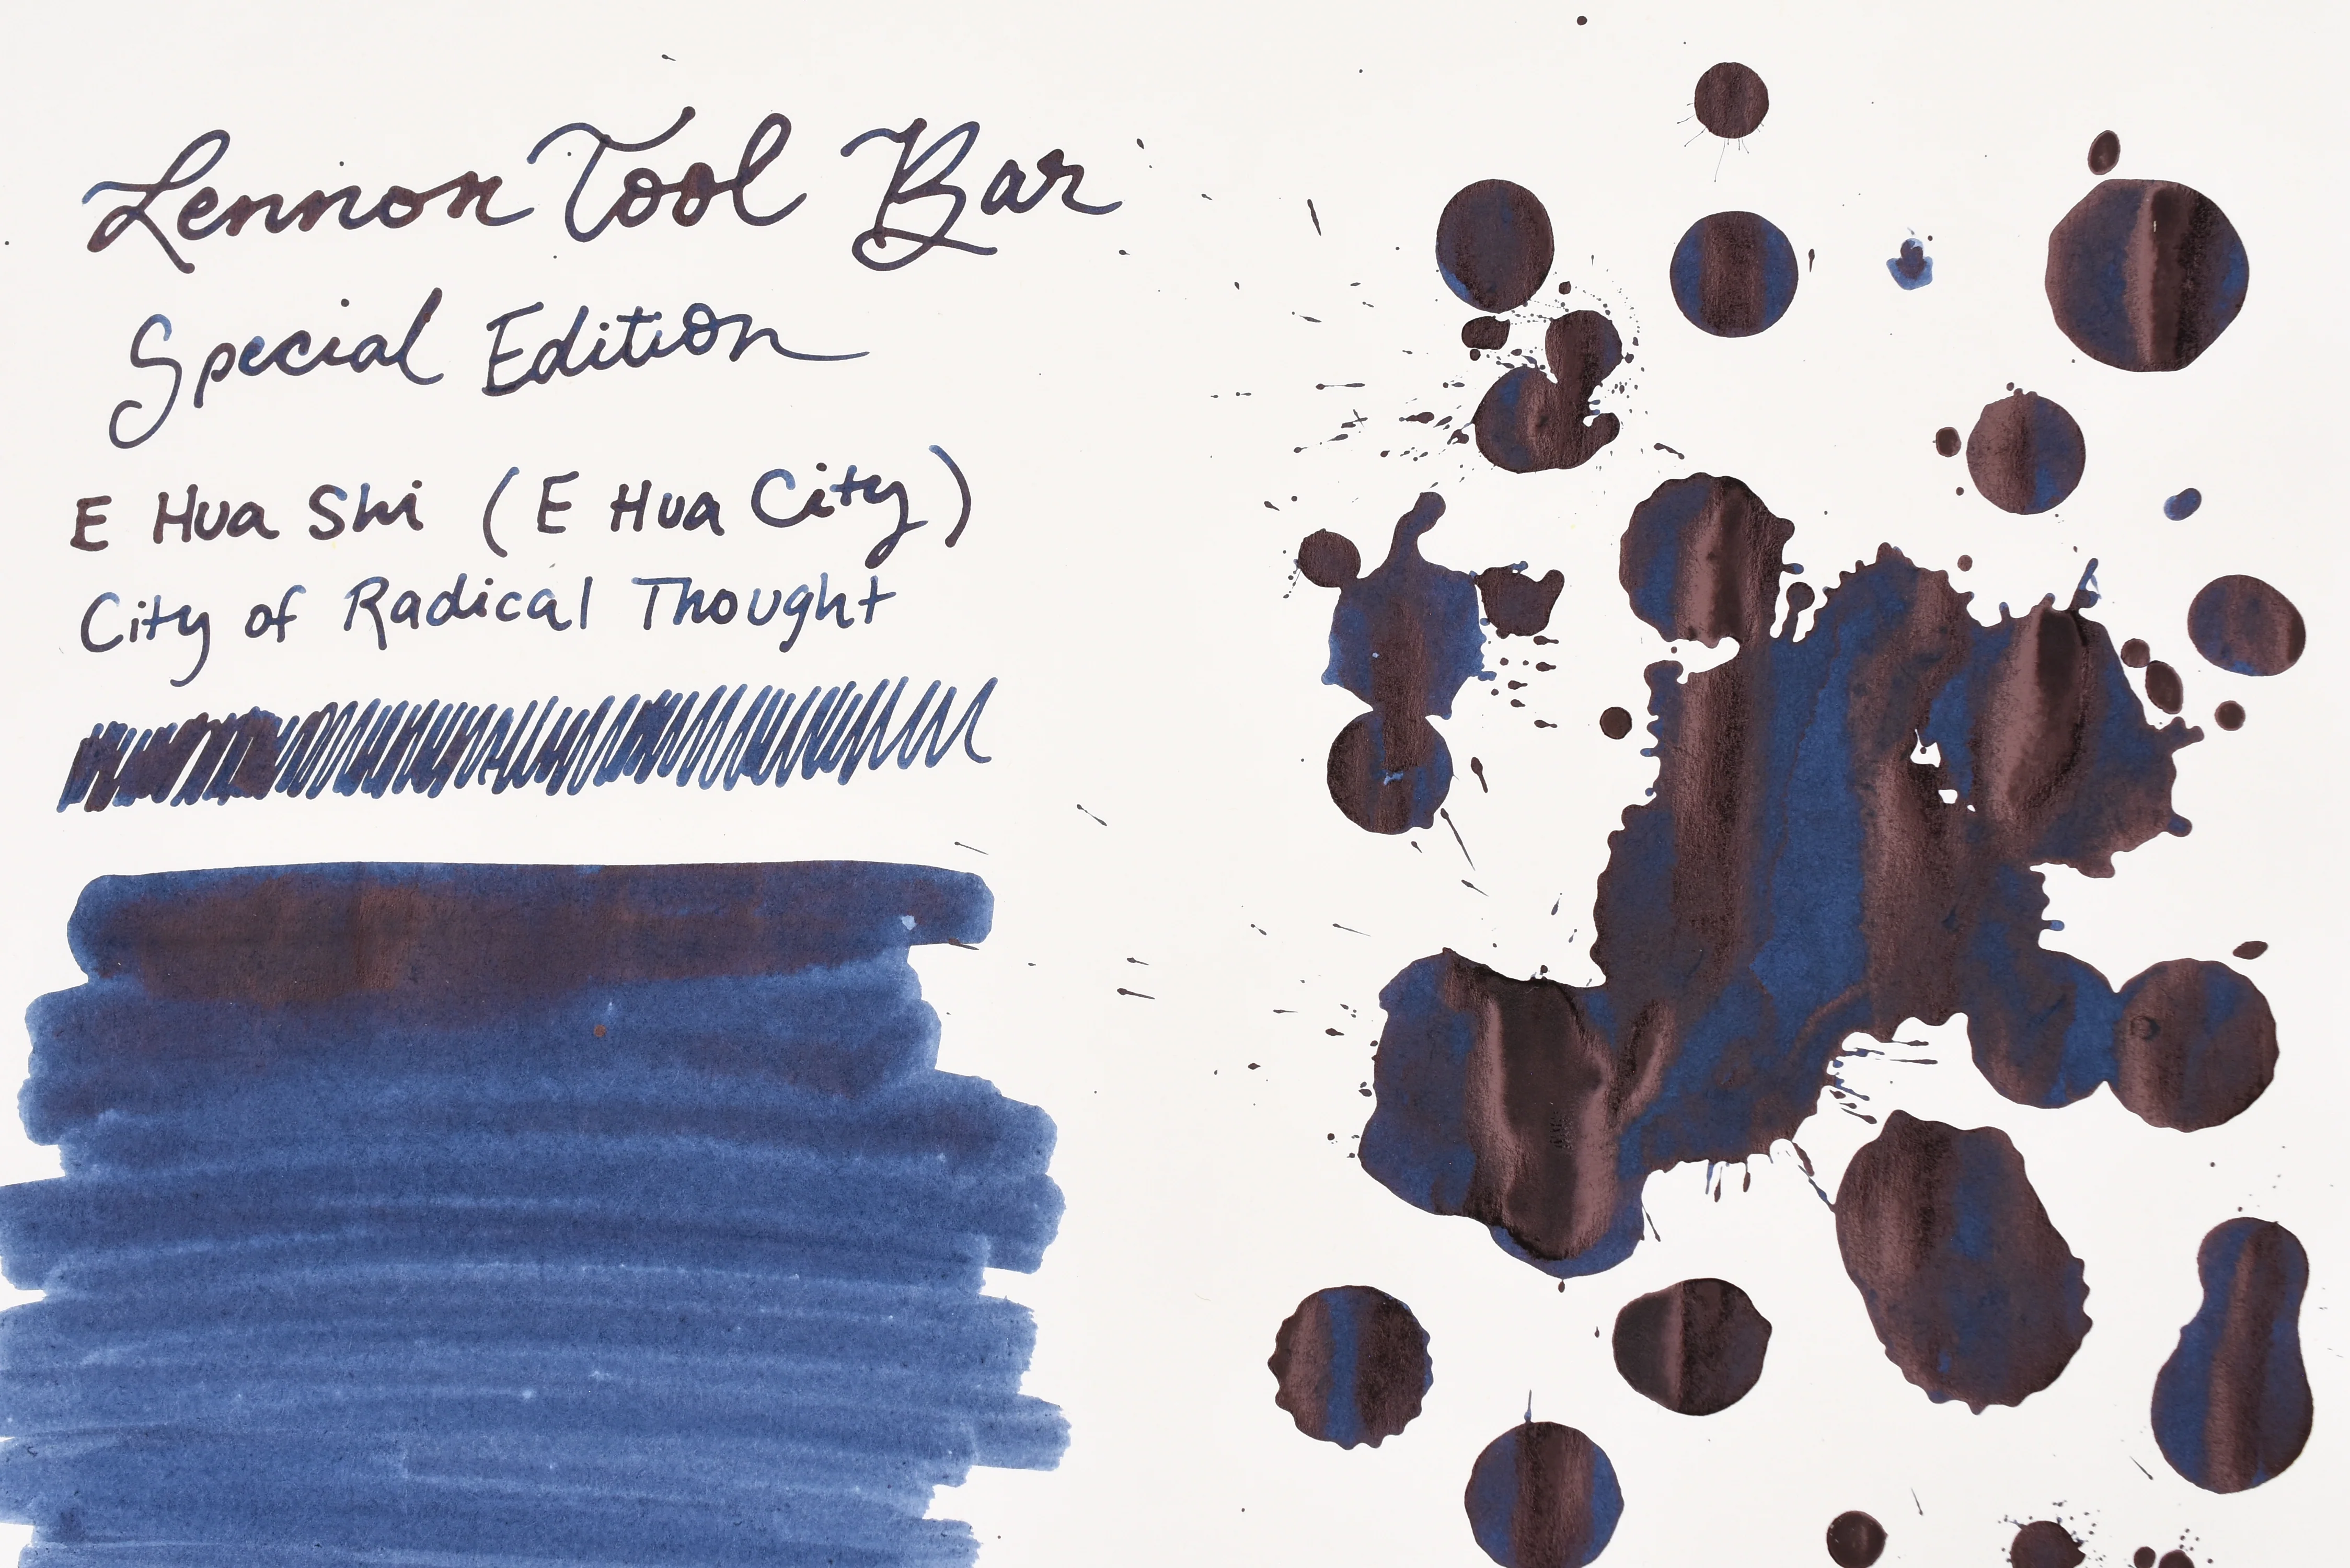 Lennon Tool Bar
Special Edition
E Hua Shi (E Hua City)
City of Radical Thought